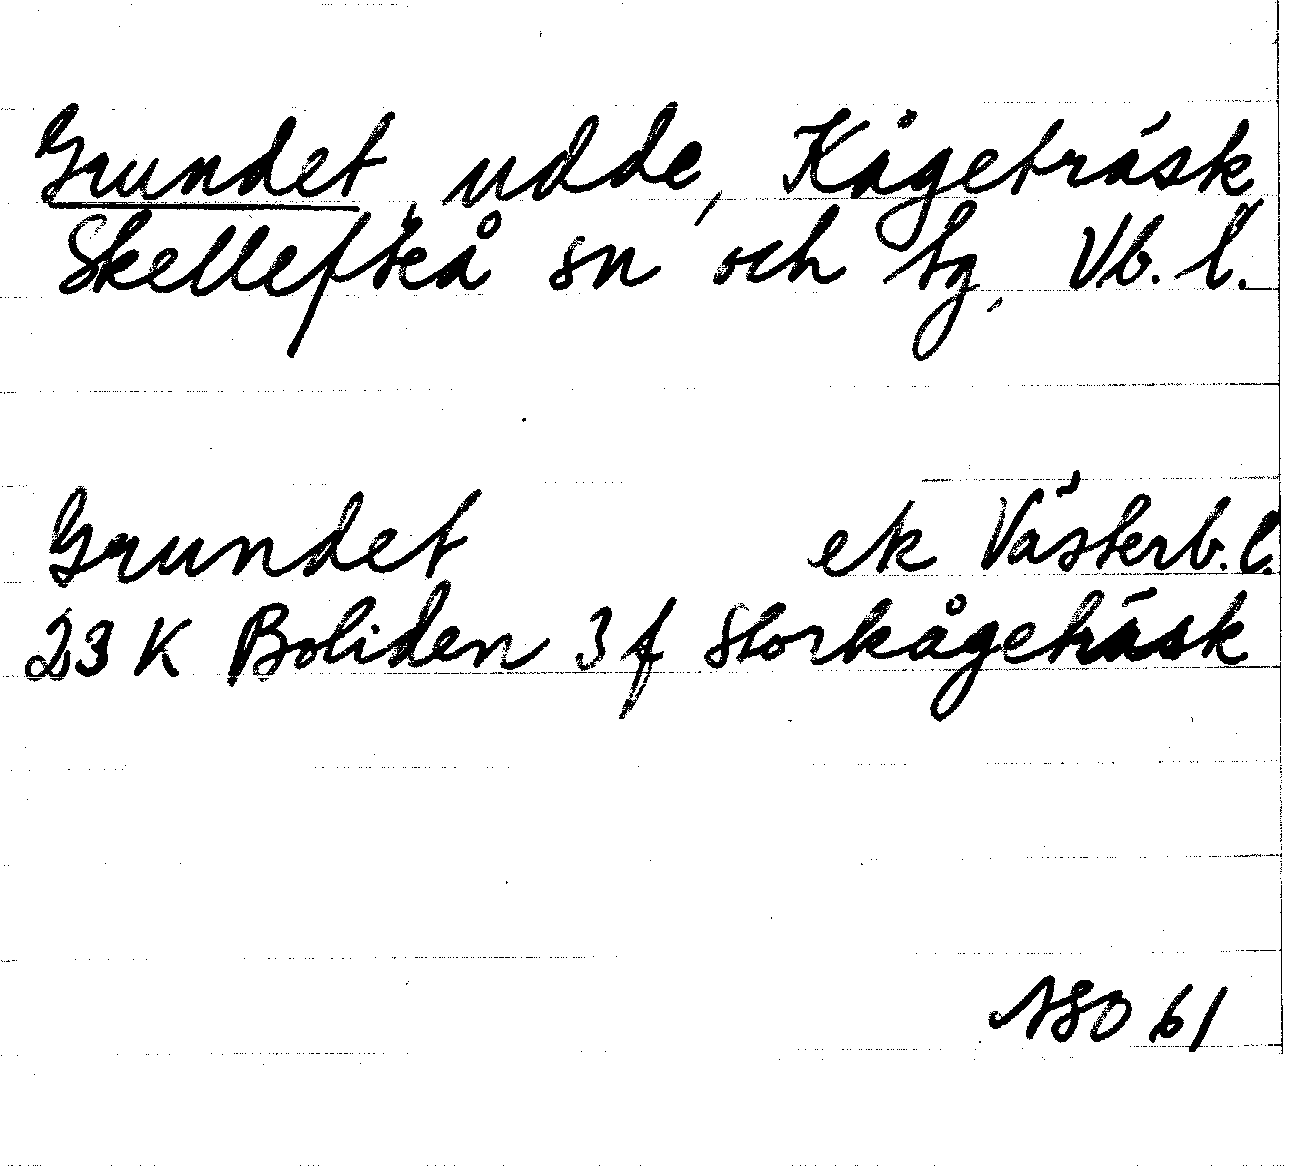 Grundet, udde, Kågeträsk
Skellefteå sn och tg, Vb. l.
Grundet ek Västerb. l.
23 K Boliden 3 f Storkågeträsk
ASO 61